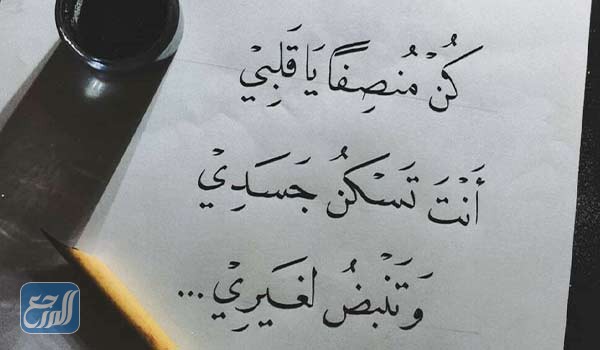 كُنْ مُنصِفًا يَا قَلِبِيْ
أَنْتَ تَسْكنُ جَسَدِيْ
وَتَنْبضُ لغَيرِيْ ...
المرجع